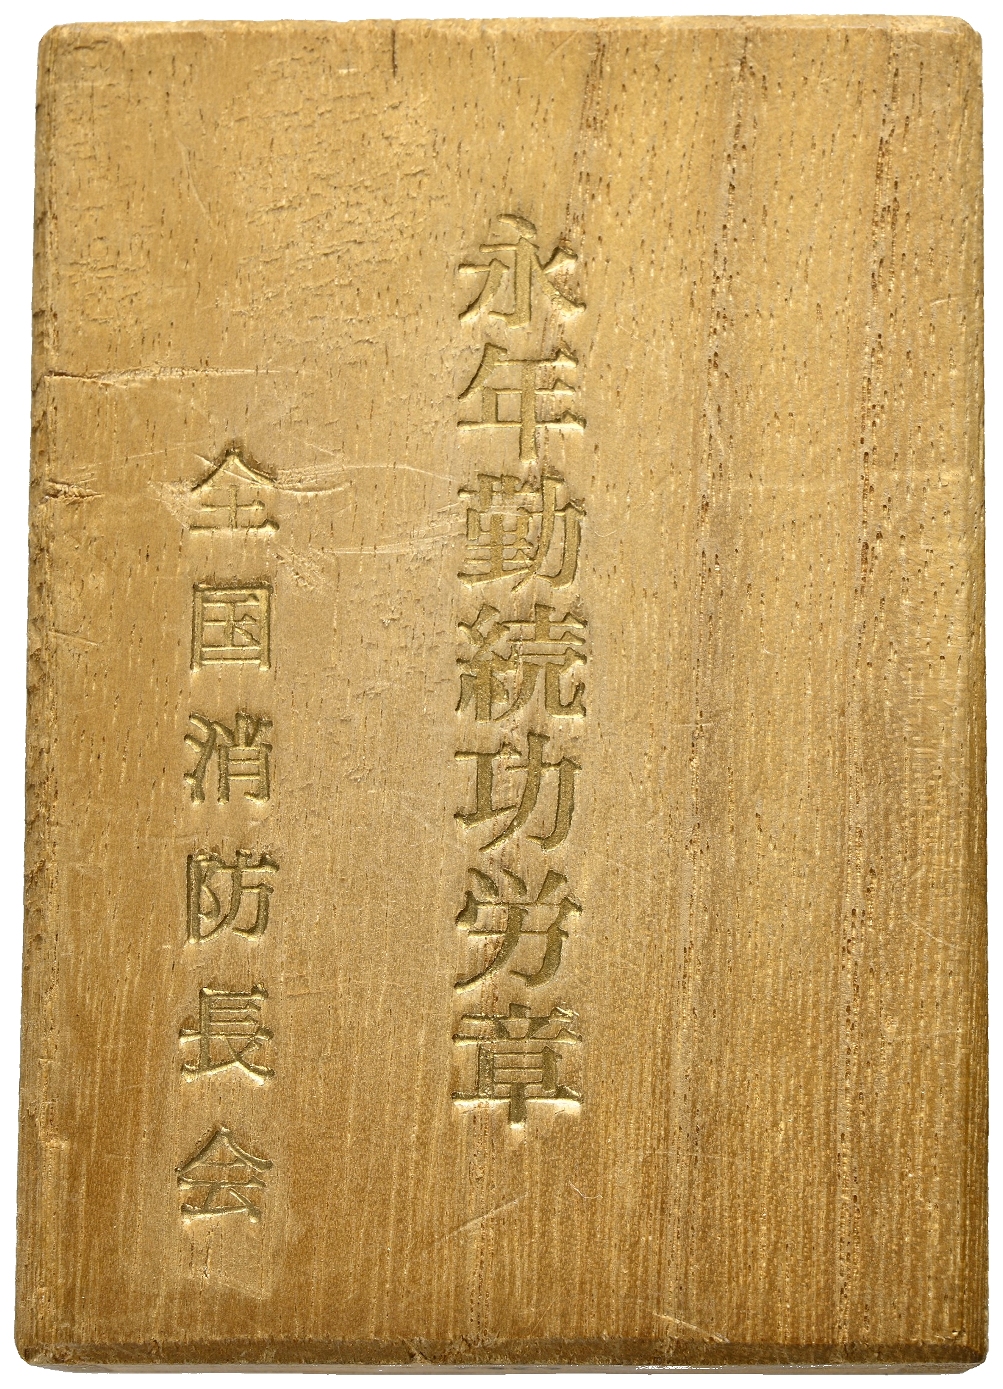 永年勤続功労章
全国消防長会